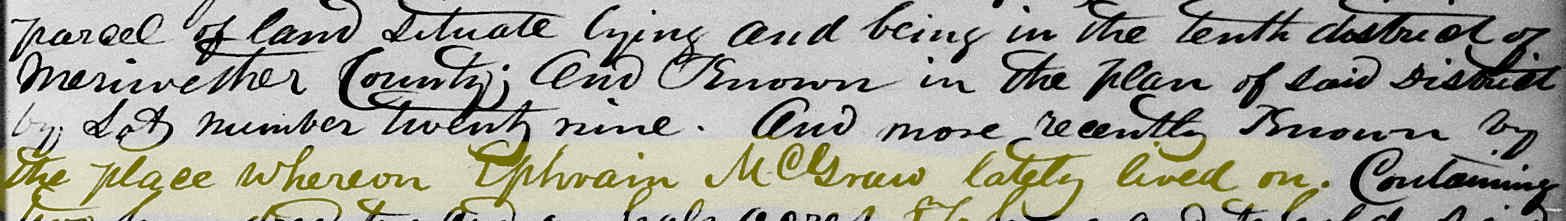 parcel of land Situate lying and being in the tenth district of
Meriwether County; And Known in the plan of said District
by Lot number twenty nine. And more recently Known by
the place whereon Ephraim McGraw lately lived on. Containing
two hundred two and a half acres